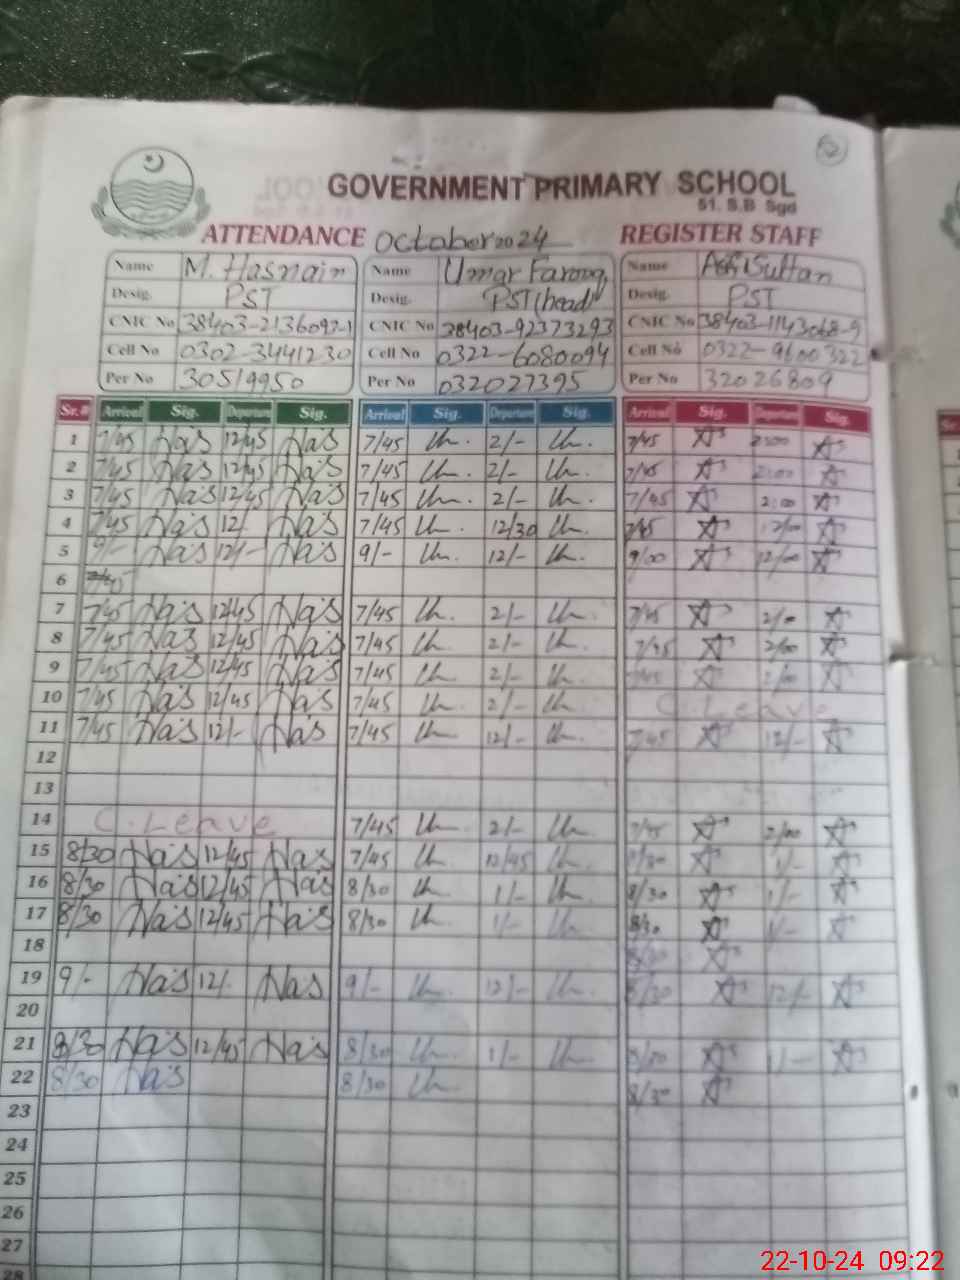 GOVERNMENT PRIMARY SCHOOL
51. S.B Sgd
ATTENDANCE October 2024 REGISTER STAFF
Name M. Hasnain Name Umar Farooq Name Sultan
Desig. PST Desig. PST (head) Desig. PST
CNIC No 38403-2136097-1 CNIC No 38403-92373293 CNIC No 38403-1143068-9
Cell No 0302-3441230 Cell No 0322-6080094 Cell No 0322-9600322
Per No 30519950 Per No 032027395 Per No 32026809
Sr.# Arrival Sig. Departure Sig. Arrival Sig. Departure Sig. Arrival Sig. Departure Sig.
1 7/45 Has 12/45 Has 7/45 2/- 7/45 2:00
2 7/45 Has 12/45 Has 7/45 2/- 7/45 2:00
3 7/45 Has 12/45 Has 7/45 2/- 7/45 2:00
4 7/45 Has 12/- Has 7/45 12/30 7/45 12/00
5 9/- Has 12/- Has 9/- 12/- 9/00 12/00
6
7 7/45 Has 12/45 Has 7/45 2/- 7/45 2/00
8 7/45 Has 12/45 Has 7/45 2/- 7/45 2/00
9 7/45 Has 12/45 Has 7/45 2/- 7/45 2/00
10 7/45 Has 12/45 Has 7/45 2/- C. Leave
11 7/45 Has 12/- Has 7/45 12/- 7/45 12/-
12
13
14 C. Leave 7/45 2/- 7/45 2/00
15 8/30 Has 12/45 Has 7/45 12/45 1/-
16 8/30 Has 12/45 Has 8/30 1/- 8/30 1/-
17 8/30 Has 12/45 Has 8/30 1/- 8/30 1/-
18 8/30
19 9/- Has 12/- Has 9/- 12/- 8/30 12/-
20
21 8/30 Has 12/45 Has 8/30 1/- 8/30 1/-
22 8/30 Has 8/30 8/30
23
24
25
26
27
28
22-10-24 09:22